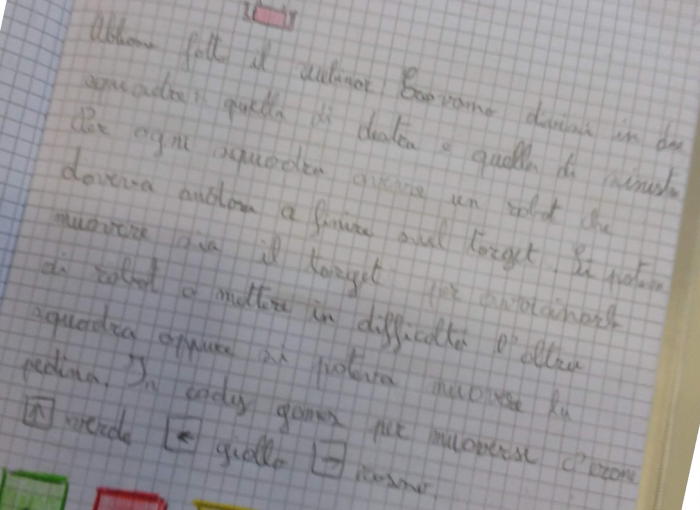 Abbiamo fatto il Eravamo divisi in due
squadre: quella di destra e quella di sinistra
Per ogni squadra aveva un robot che
doveva andare a finire sul target. Si poteva
muovere sia il target per avvicinarlo
al robot o mettere in difficoltà l'altra
squadra oppure si poteva muovere la
pedina. In cody games per muoversi c'erano
↑ verde ← giallo → rosso.